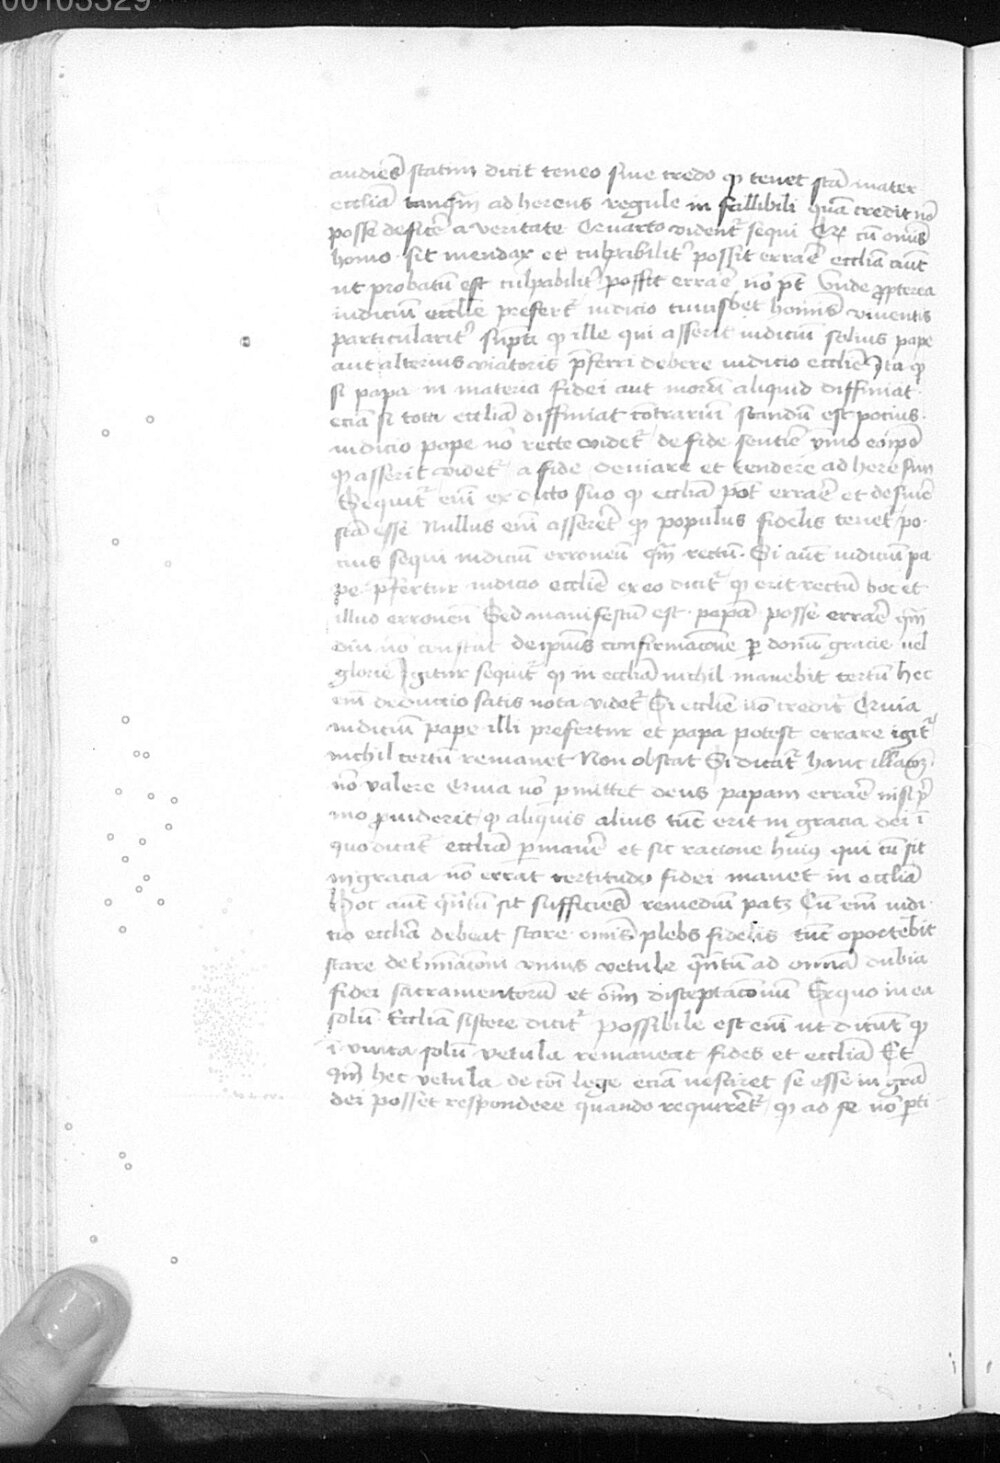 00103329
audiēs statim dicit teneo siue credo qꝫ tenet scā mater
eccliā tanqͣm ad herens regule in fallibili quā credit nō
posse deficē a veritate Quarto videntꝰ sequi qꝫ cū omīs
homo sit mendax et culpabilitꝰ possit errarē ecclīa autē
ut probatū est culpabilitꝰ possit errarē nō pōt Vnde ꝓpterea
iudiciū ecclīe prefertꝰ iudicio cuiusbet hominis viuentis
particularitꝰ supͣ qꝫ ille qui asserit iudiciū solius pape
aut alterius viatoris p̄ferri debere iudicio ecclīe Ita qꝫ
si papa in materia fidei aut morū aliquid diffiniat
eciā si tota ecclīa diffiniat cōtrariū standū est pocius
iudicio pape nō recte videtꝰ de fide sentire ymo eo ipō
qꝫ asserit videtꝰ a fide deuiare et tendere ad heresim
Sequitꝰ eni ex dicto suo qꝫ ecclīa pōt errarē et desinē
scā esse Nullus eni assereret qꝫ populus fidelis tenetꝰ po
cius sequi iudiciū erroneū qͣm rectū Si autē iudiciū pa
pe p̄fertur iudicio ecclīe ex eo dicitꝰ qꝫ erit rectū hoc et
illud erroneū Sed manifestū est papā posse errarē qͣm
diu nō constat de ipius confirmacōne ꝑ donū gracie uel
glorie Igitur sequitꝰ qꝫ in ecclīa nichil manebit certū hec
eni deductio satis nota videtꝰ Si ecclīe nō creditꝰ Quia
iudiciū pape illi prefertur et papa potest errare igitꝰ
nichil certū remanet Non obstat Si dicatꝰ hanc illacōꝫ
nō valere Quia nō ꝑmittet deus papam errarē nisi pͥ
mo ꝓuiderit qꝫ aliquis alius tūc erit in gracia dei ī
quo dicatꝰ ecclīam ꝑmanē et sic racione huiꝰ qui cū sit
in gracia nō errat certitudo fidei manet in ecclīa
Hoc autē qͣntū sit sufficiēs remediū patꝫ Cū eni iudi
cio ecclīa debeat stare omīs plebs fidelis tūc oportebit
stare det̄minacōni vnius vetule qͣntū ad omīa dubia
fidei sacramentorū et om̄i disceptacōnū Ex quo in ea
solū Ecclīam sistere dicitꝰ possibile est eni ut dicūt qꝫ
ī vnica solū vetula remaneat fides et ecclīa Et
qͣm hec vetula de cōi lege eciā nesciret se esse in grā
dei posset respondere quando requireretꝰ qꝫ ad se nō pͥti